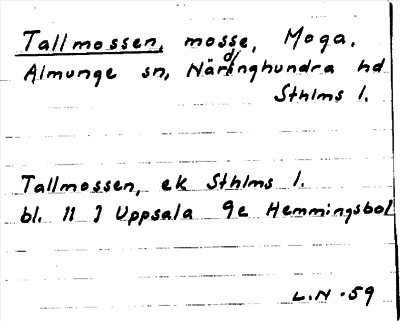 Tallmossen, mosse, Moga.
Almunge sn, Närdinghundra hd
Sthlms l.
Tallmossen, ek Sthlms l.
bl. 11 J Uppsala 9e Hemmingsbol
L.N -59